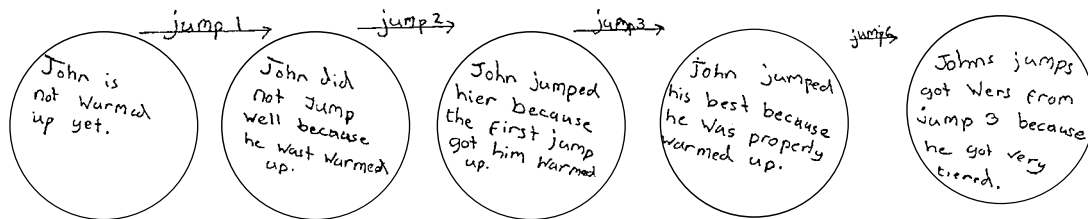 jump 1
jump 2
jump3
jump6
John is
not warmed
up yet.
John did
not jump
well because
he wast warmed
up.
John jumped
hier because
the first jump
got him warmed
up.
John jumped
his best because
he was properly
warmed up.
Johns jumps
got wers from
jump 3 because
he got very
tiered.